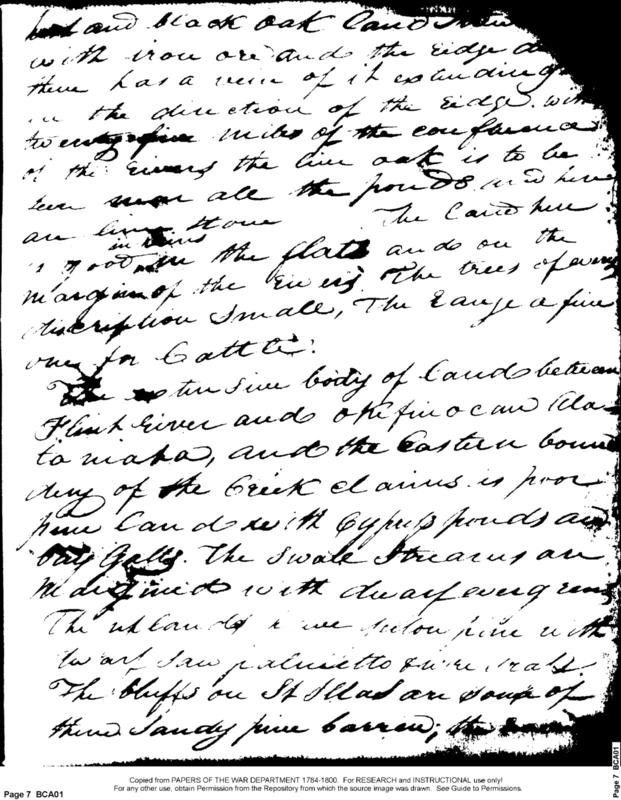 and black oak land
with iron ore and the ridge
there has a vein of it extending
in the direction of the ridge. with
twenty five miles of the confluence
of the rivers the live oak is to be
seen near all the ponds and here
are lime stone The land here
is good in the flats and on the
margin of the rivers The trees of every
discription small, The range a fine
one for Cattle.
The extensive body of land between
Flint river and okefinocau Ala-
tamaha, and the Eastern boun
dery of the Creek claims is poor
pine land with Cypress ponds and
bay Galls. The small streams are
margined with dwarf evergreens
The uplands have yellow pine with
dwarf saw palmetto
The bluffs on St Illas are some of
them Sandy pine barren; the
Copied from PAPERS OF THE WAR DEPARTMENT 1784-1800. For RESEARCH and INSTRUCTIONAL use only!
For any other use, obtain Permission from the Repository from which the source image was drawn. See Guide to Permissions.
Page 7 BCA01
Page 7 BCA01